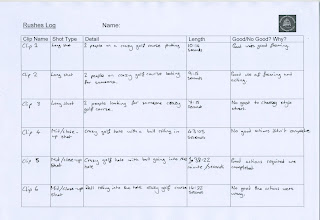 Rushes Log Name:
Clip Name Shot Type Detail Length Good/No Good? Why?
Clip 1 Long shot 2 people on a crazy golf course putting 10:16 seconds Good very good framing.
Clip 2 Long shot 2 people on crazy golf course looking for someone. seconds Good use of framing and acting.
Clip 3 Long shot 2 people looking for someone crazy golf course. seconds No good to change style
Clip 4 Mid/close-up shot Crazy golf hole with a ball rolling in seconds No good actions didn't complete
Clip 5 Mid/close-up shot Crazy golf hole with ball going into the hole Good actions required were completed.
Clip 6 Mid/close-up shot Ball rolling into the hole crazy golf course seconds No good the actions were wrong.